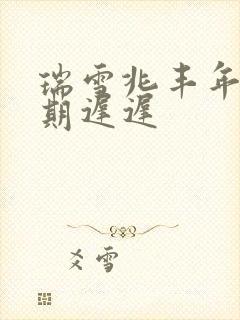 瑞雪兆丰年
期遲遲
爻雪